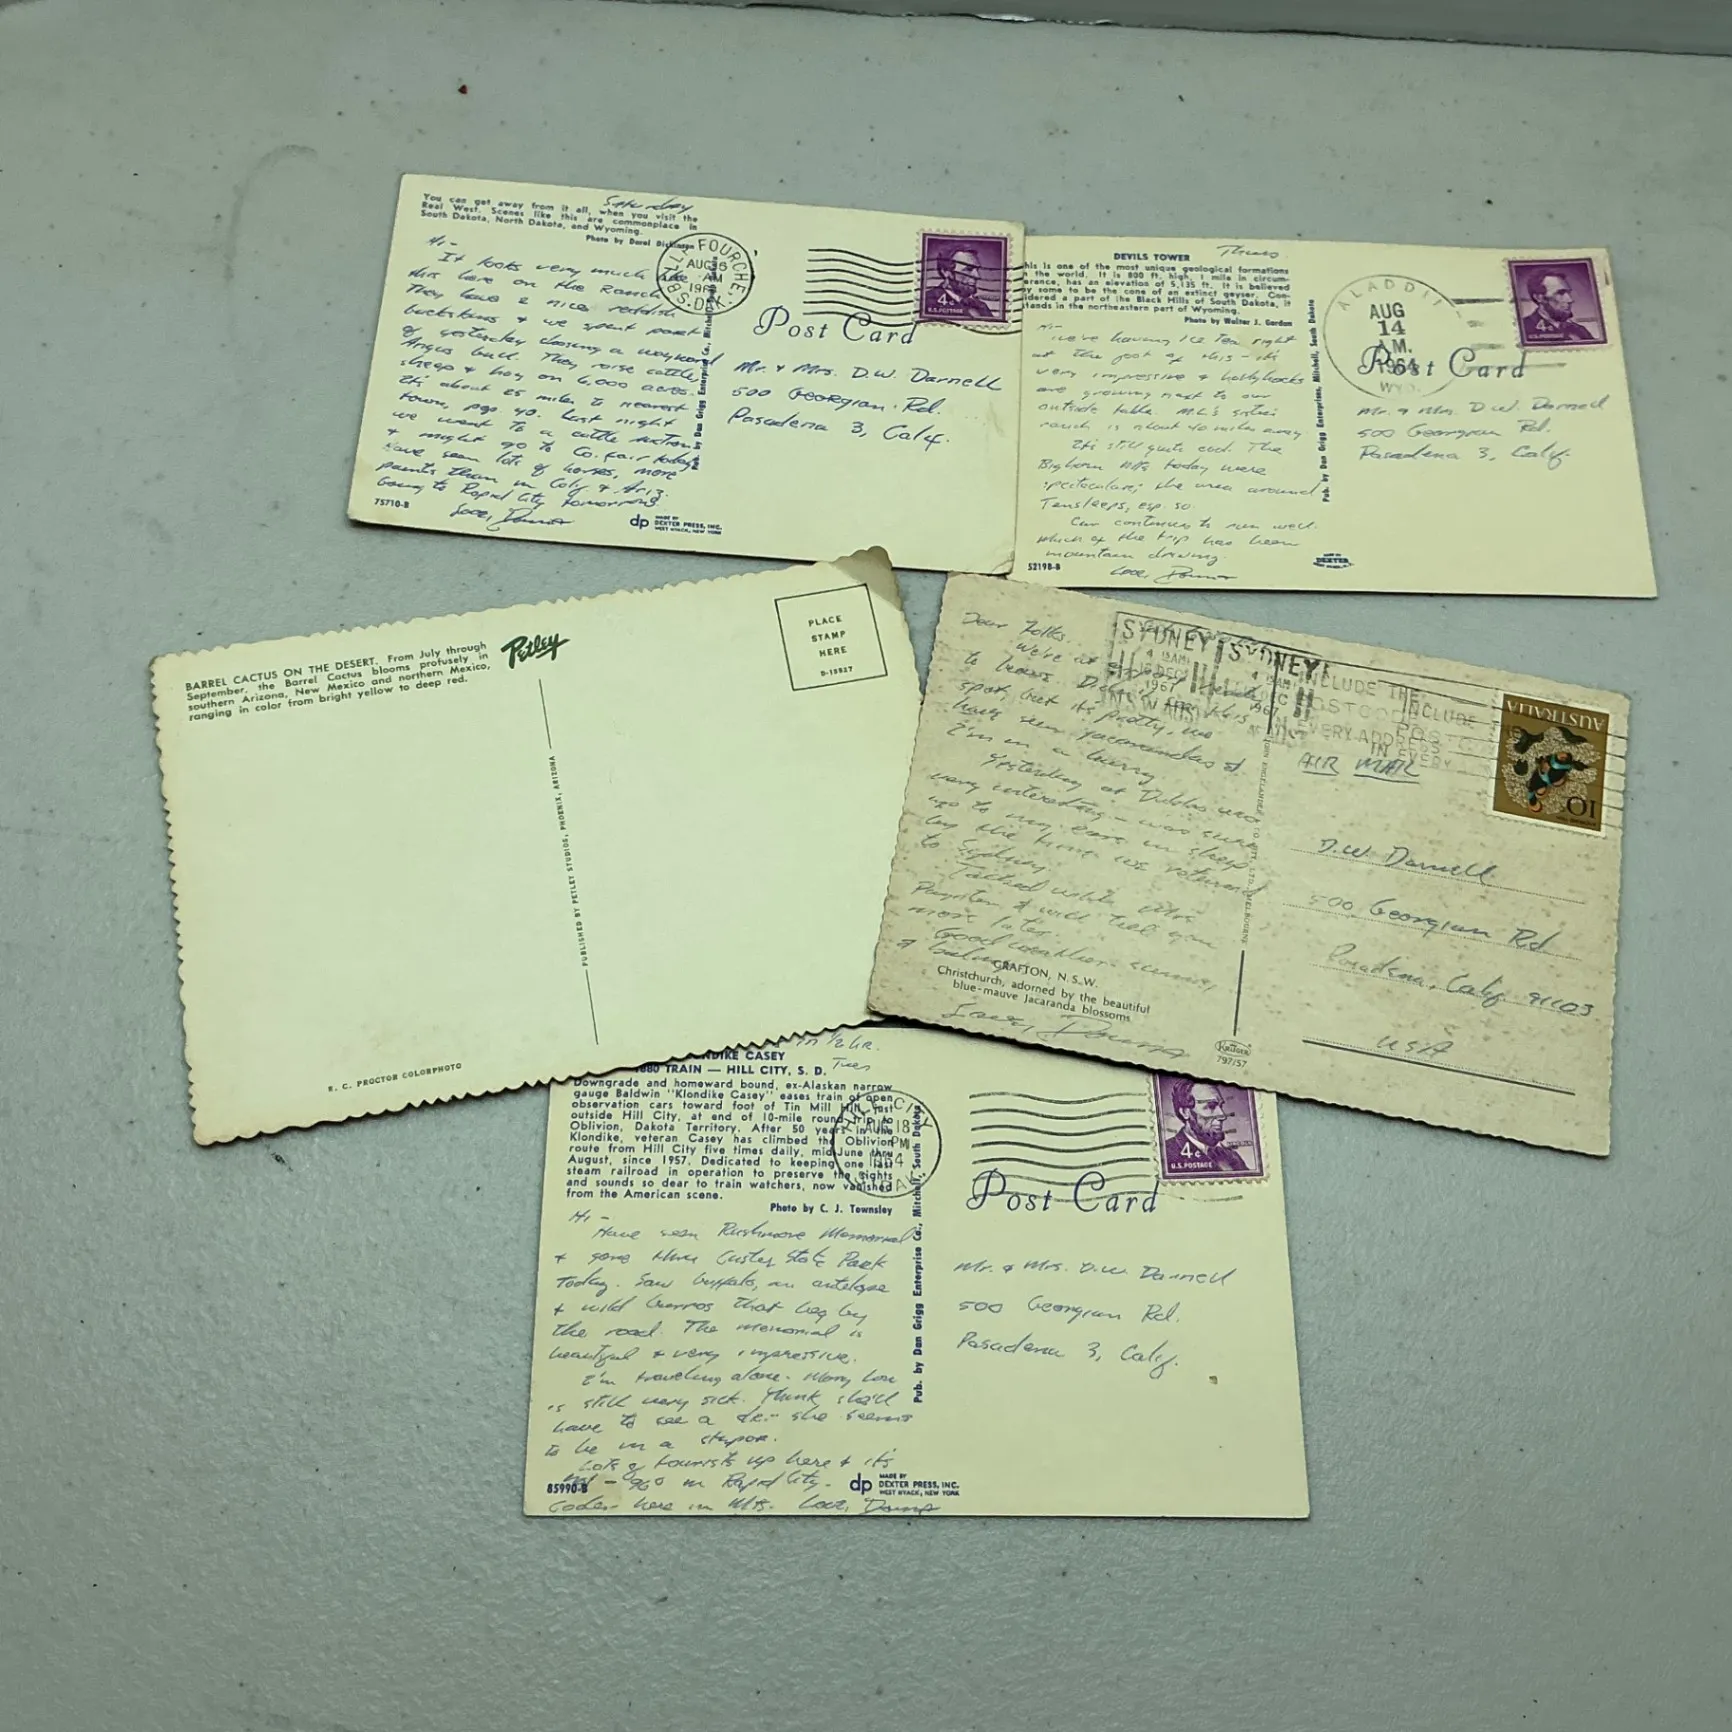 You can get away from it all, when you visit the
Real West. Scenes like this are commonplace in
South Dakota, North Dakota, and Wyoming.
Photo by Dorel Dickinson
Saturday
Hi-
It looks very much like
this here on the Ranch.
They have a nice reddish
buckskins & we spent part
of yesterday chasing a wayward
Angus bull. They raise cattle,
sheep & hay on 6,000 acres.
It's about 25 miles to nearest
town, pop 40. Last night
we went to a cattle auction
& might go to Co. fair today
Have seen lots of horses, more
paints than in Calif & Ariz.
Going to Rapid City tomorrow.
Love, Donna
75710-B
dp MADE BY
DEXTER PRESS, INC.
WEST NYACK, NEW YORK
BELLE FOURCHE
AUG
AM
S. DAK.
4¢
U.S. POSTAGE
Post Card
Mr. & Mrs. D.W. Darnell
500 Georgian Rd.
Pasadena 3, Calif.
DEVILS TOWER
Thurs
his is one of the most unique geological formations
n the world. It is 800 ft. high, 1 mile in circum-
erence, has an elevation of 5,135 ft. It is believed
y some to be the cone of an extinct geyser. Con-
idered a part of the Black Hills of South Dakota, it
tands in the northeastern part of Wyoming.
Photo by Walter J. Gordon
Hi-
We're having Ice Tea right
at the foot of this - it's
very impressive & hollyhocks
are growing next to our
outside table. M.L.'s sister's
ranch is about 40 miles away
It's still quite cool. The
Bighorn Mts today were
spectacular; the area around
Tensleeps, esp. so.
Car continues to run well.
Which of the trip has been
mountain driving.
Love, Donna
52198-B
MADE BY
DEXTER
Pub. by Dan Grigg Enterprises, Mitchell, South Dakota
ALADDIN
AUG
14
A.M.
1964
WYO.
4¢
Post Card
Mr. & Mrs D.W. Darnell
500 Georgian Rd.
Pasadena 3, Calif.
BARREL CACTUS ON THE DESERT. From July through
September, the Barrel Cactus blooms profusely in
southern Arizona, New Mexico and northern Mexico,
ranging in color from bright yellow to deep red.
Petley
PLACE
STAMP
HERE
PUBLISHED BY PETLEY STUDIOS, PHOENIX, ARIZONA
R. C. PROCTOR COLORPHOTO
Dear Folks,
We're at
to
spot, but it's pretty, we
have seen jacarandas &
I'm in a hurry.
Yesterday at Dubbo was
very interesting - was
up to my ears in sheep
by the time we returned
to Sydney.
Talked with Mrs
Paynter & will tell you
more later.
Good weather, scenery,
&
Love, Donna
GRAFTON, N.S.W.
Christchurch, adorned by the beautiful
blue-mauve Jacaranda blossoms
797/57
SYDNEY SYDNEY
DEC
1967
1967
INCLUDE THE
POSTCODE
IN EVERY ADDRESS
INCLUDE
AIR MAIL
AUSTRALIA
10
D.W. Darnell
500 Georgian Rd
Pasadena, Calif 91103
USA
NDIKE CASEY
1880 TRAIN — HILL CITY, S. D.
in 1/2 hr.
Tues
Downgrade and homeward bound, ex-Alaskan narrow
gauge Baldwin "Klondike Casey" eases train of open
observation cars toward foot of Tin Mill Hill just
outside Hill City, at end of 10-mile round-trip to
Oblivion, Dakota Territory. After 50 years in the
Klondike, veteran Casey has climbed the Oblivion
route from Hill City five times daily, mid-June thru
August, since 1957. Dedicated to keeping one last
steam railroad in operation to preserve the sights
and sounds so dear to train watchers, now vanished
from the American scene.
Photo by C. J. Townsley
Hi-
Have seen Rushmore Memorial
& gone thru Custer State Park
today. Saw buffalo, an antelope
& wild burros that beg by
the road. The memorial is
beautiful & very impressive.
I'm traveling alone. Mary Lou
is still very sick. Think she'll
have to see a dr. - she seems
to be in a stupor.
Lots of tourists up here & it's
hot - 96° in Rapid City.
Cooler here in Mts. Love, Donna
85990-B
dp MADE BY
DEXTER PRESS, INC.
WEST NYACK, NEW YORK
Pub. by Dan Grigg Enterprise Co., Mitchell, South Dakota
HILL CITY
AUG 18
PM
1964
4¢
U.S. POSTAGE
Post Card
Mr. & Mrs. D.W. Darnell
500 Georgian Rd.
Pasadena 3, Calif.